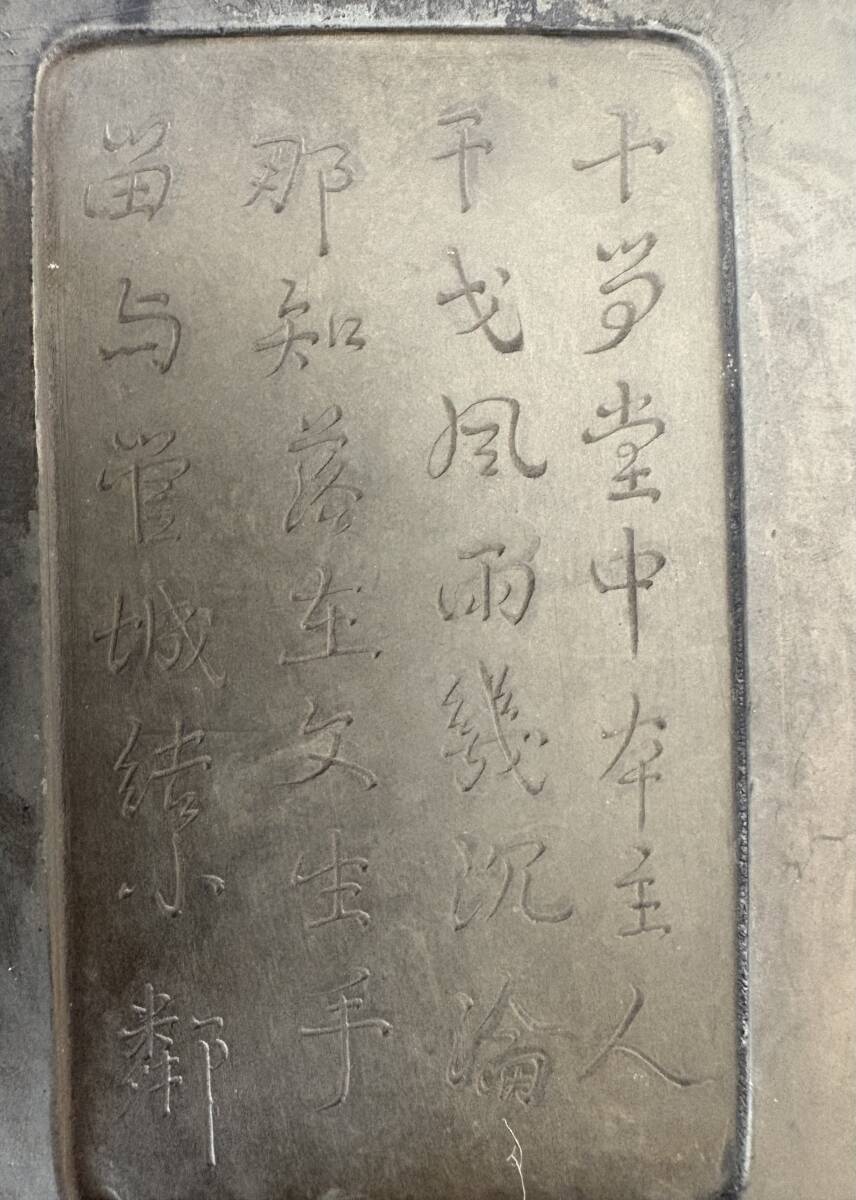 十笏堂中本主人
干戈風雨幾沉淪
那知落在文生手
留与管城結小鄰